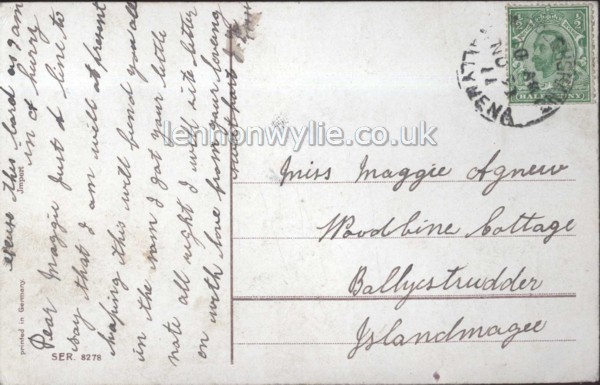 excuse this card as I am
in a hurry
Dear Maggie Just a line to
say that I am well at present
hoping this will find you all
in the sam I got your little
note all right I will rite better
on with love from your loving
sweet hart
Miss Maggie Agnew
Woodbine Cottage
Ballycstrudder
Islandmagee
HALFPENNY
BALLYMENA
lennonwylie.co.uk
printed in Germany
Import
SER. 8278